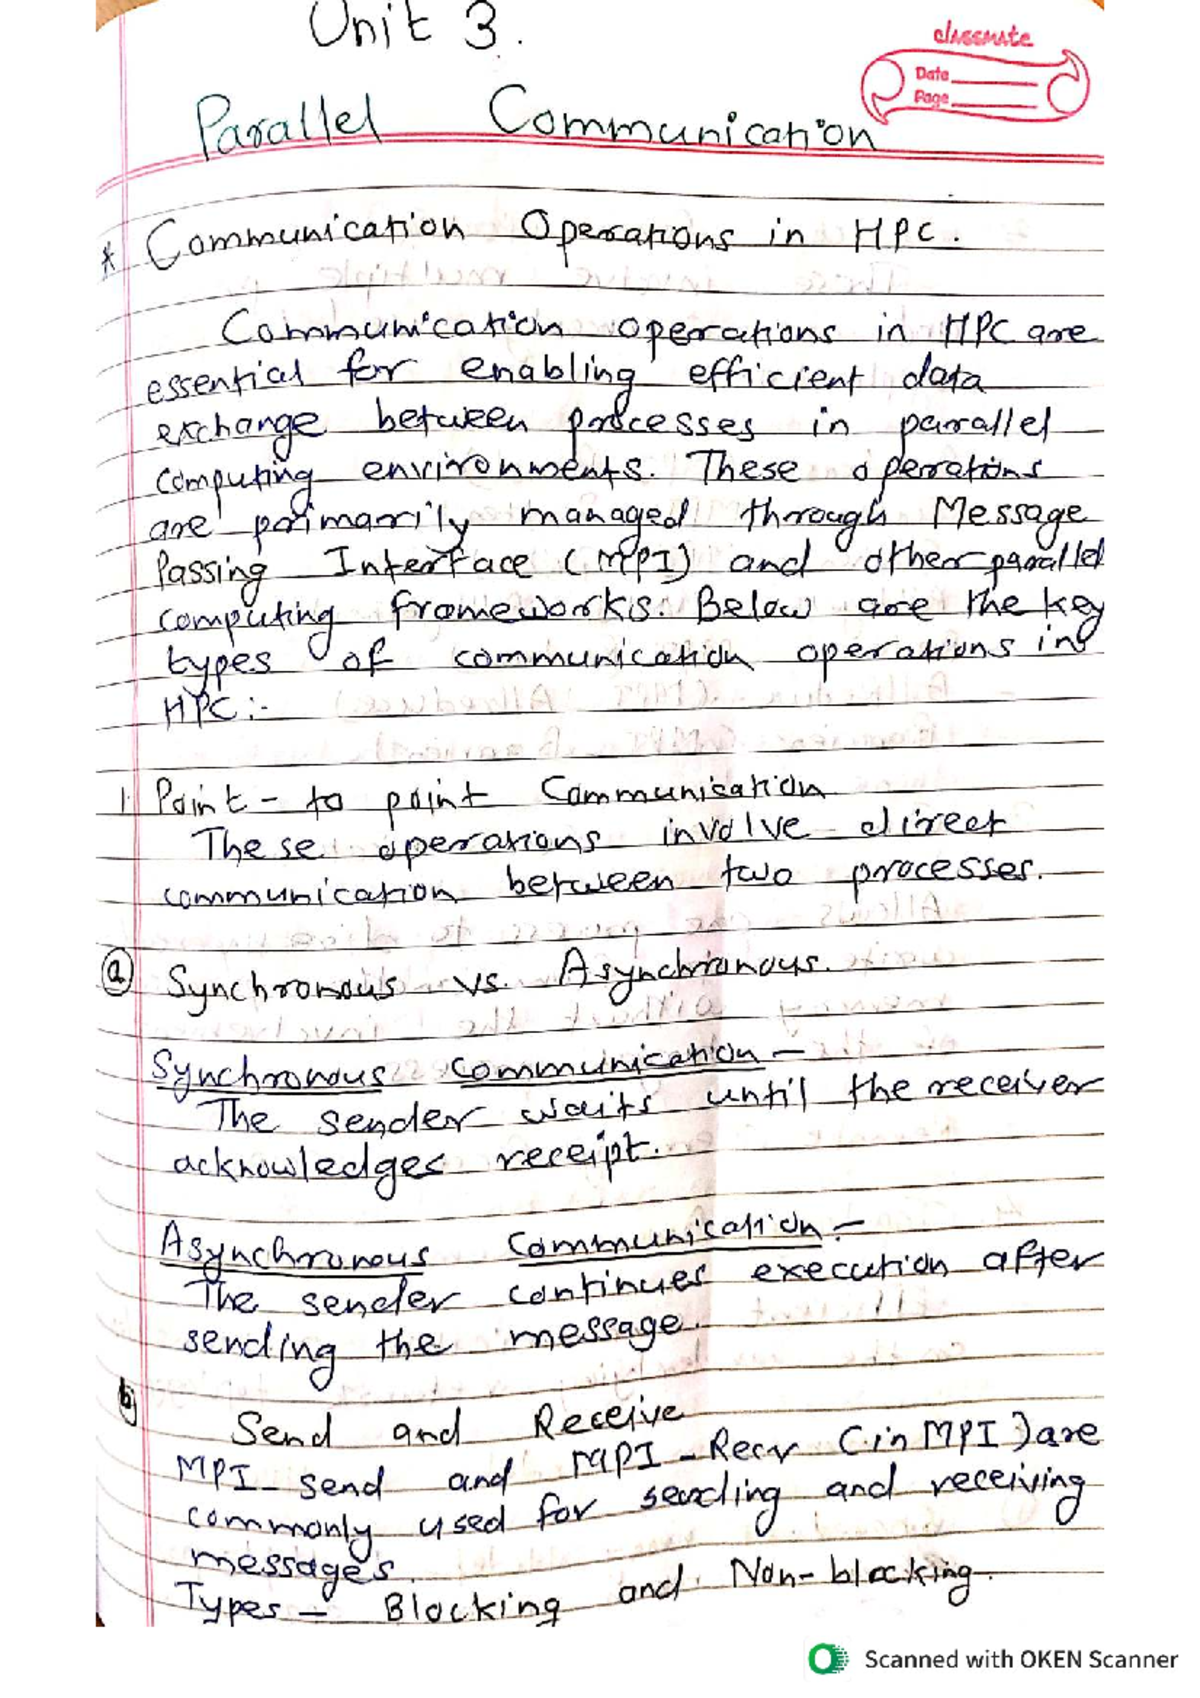 Unit 3.
classmate
Date
Page
Parallel Communication
* Communication Operations in HPC.
Communication operations in HPC are
essential for enabling efficient data
exchange between processes in parallel
computing environments. These operations
are primarily managed through Message
Passing Interface (MPI) and other parallel
computing frameworks. Below are the key
types of communication operations in
HPC:-
1. Point - to point Communication
These operations involve direct
communication between two processes.
(a) Synchronous vs. Asynchronous.
Synchronous communication -
The sender waits until the receiver
acknowledges receipt.
Asynchronous Communication -
The sender continues execution after
sending the message.
(b)
Send and Receive
MPI_send and MPI-Recv (in MPI) are
commonly used for sending and receiving
messages.
Types - Blocking and Non-blocking.
Scanned with OKEN Scanner